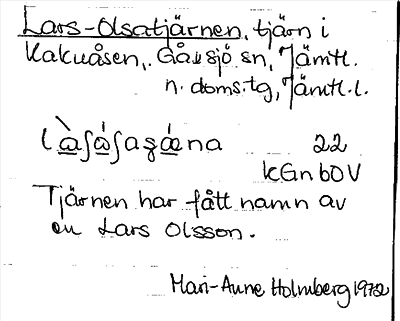 Lars-Olsatjärnen, tjärn i
Kakuåsen, Gåxsjö sn, Jämtl.
n. doms.tg, Jämtl.l.
22
kGnbOV
Tjärnen har fått namn av
en Lars Olsson.
Mari-Anne Holmberg 1972